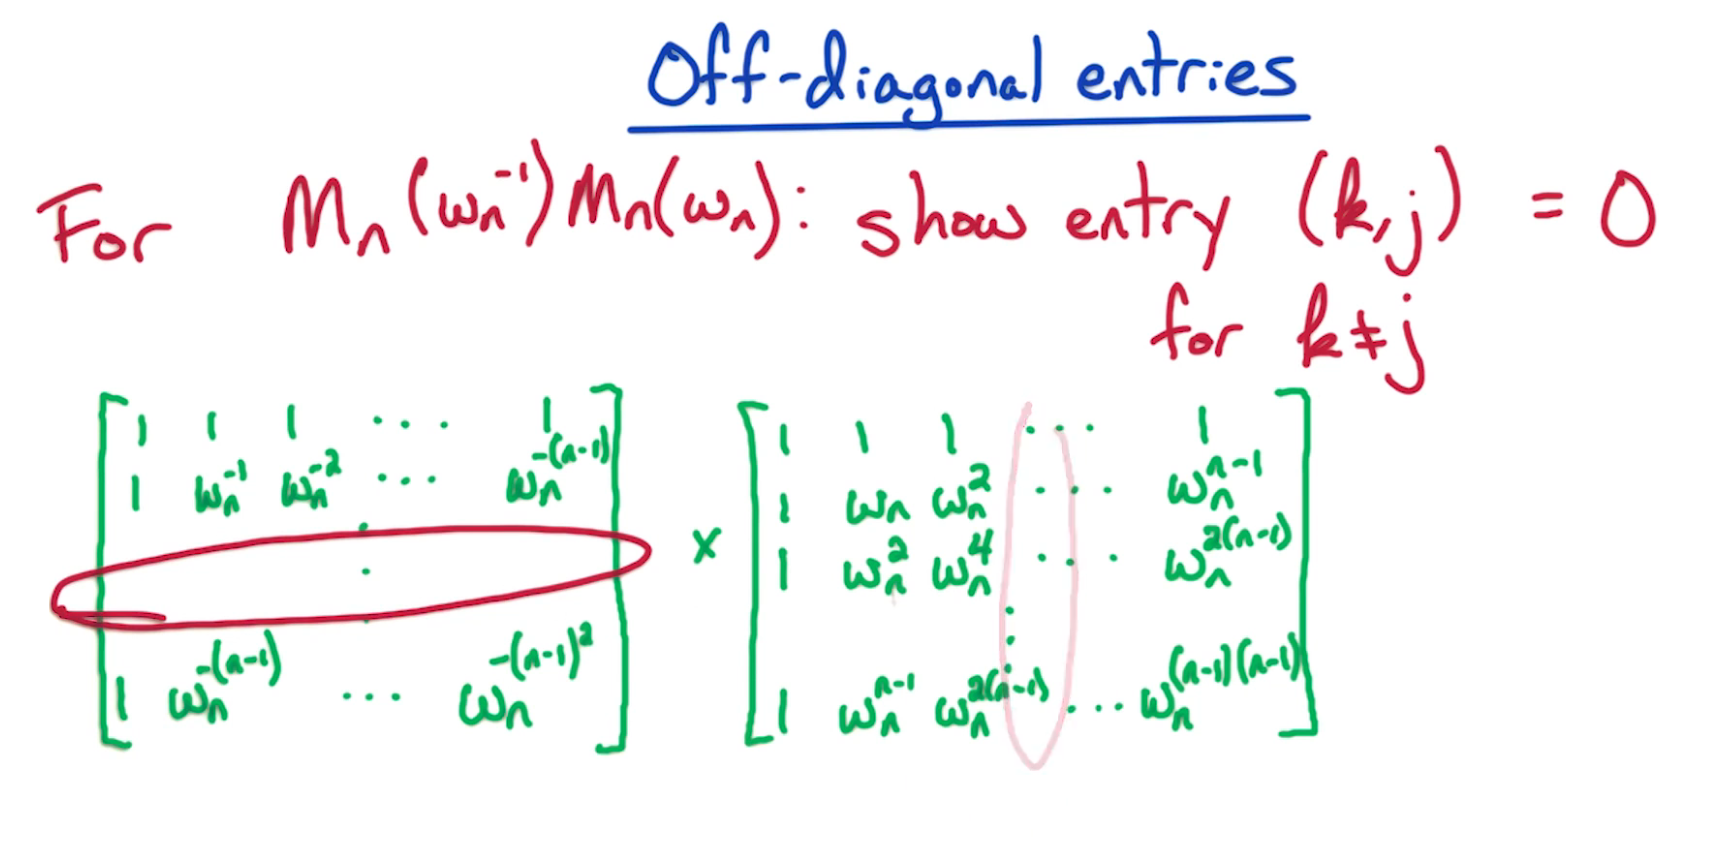 Off-diagonal entries
For Mₙ(ωₙ⁻¹)Mₙ(ωₙ): show entry (k,j) = 0
for k≠j
[ 1 1 1 ... 1 ] [ 1 1 1 ... 1 ]
[ 1 ωₙ⁻¹ ωₙ⁻² ... ωₙ^-(n-1) ] [ 1 ωₙ ωₙ² ... ωₙ^n-1 ]
⋮ × [ 1 ωₙ² ωₙ⁴ ... ωₙ^2(n-1) ]
⋮
[ 1 ωₙ^-(n-1) ... ωₙ^-(n-1)² ] [ 1 ωₙ^n-1 ωₙ^2(n-1) ... ωₙ^(n-1)(n-1) ]